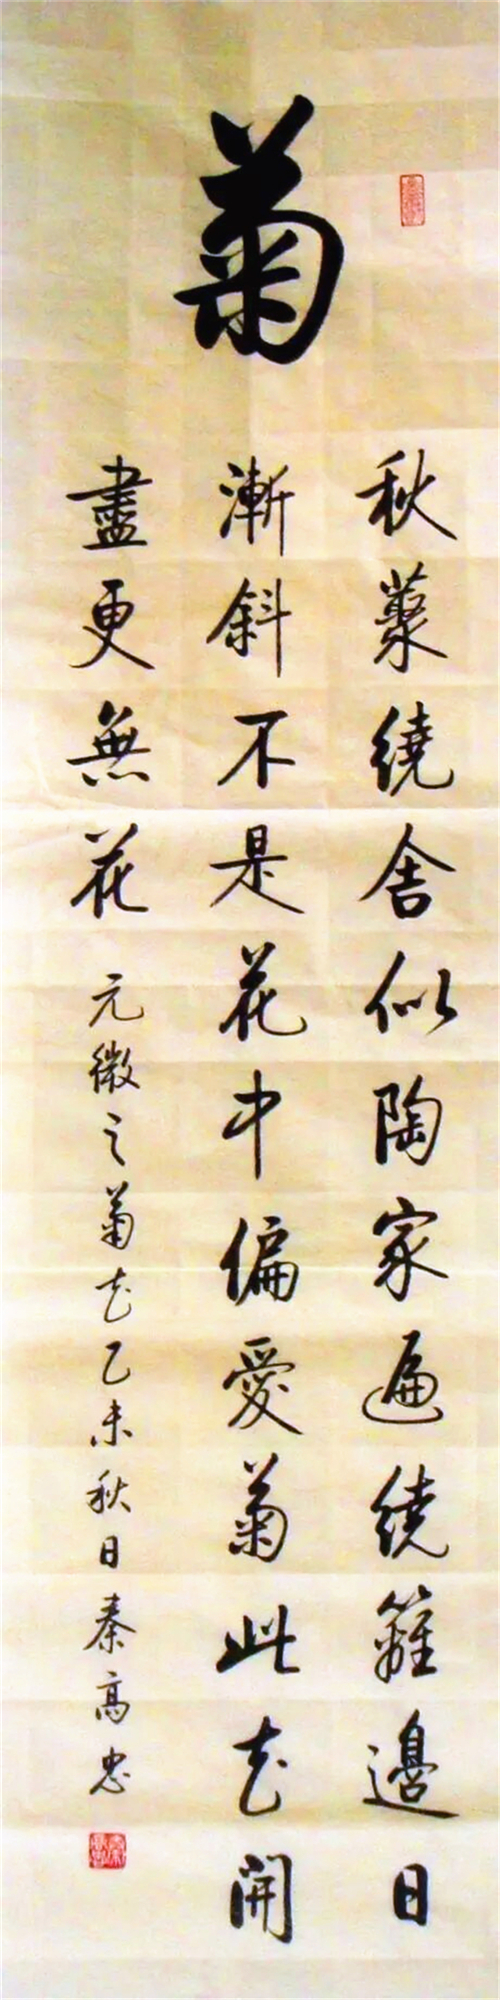 菊
秋藂繞舍似陶家遍繞籬邊日
漸斜不是花中偏愛菊此花開
盡更無花
元微之菊花乙未秋日秦高忠